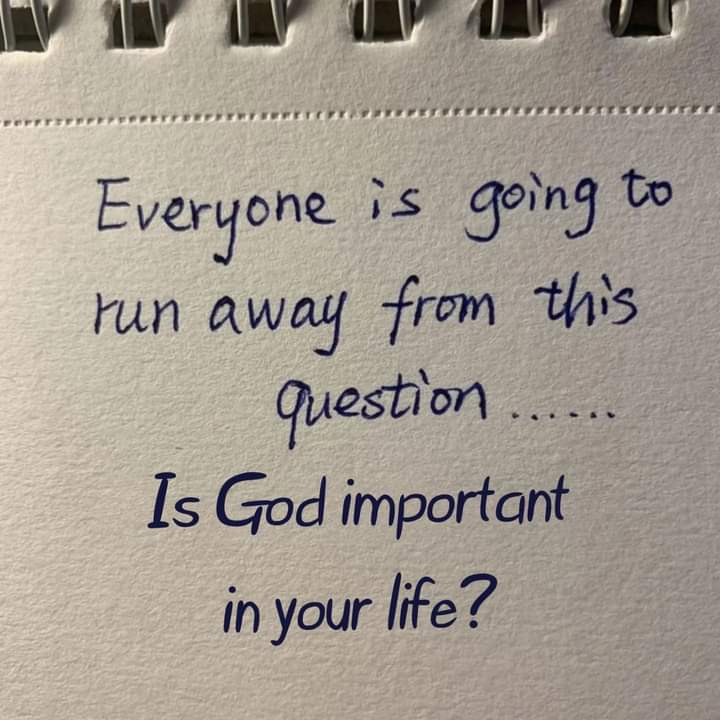 Everyone is going to
run away from this
question ......
Is God important
in your life?